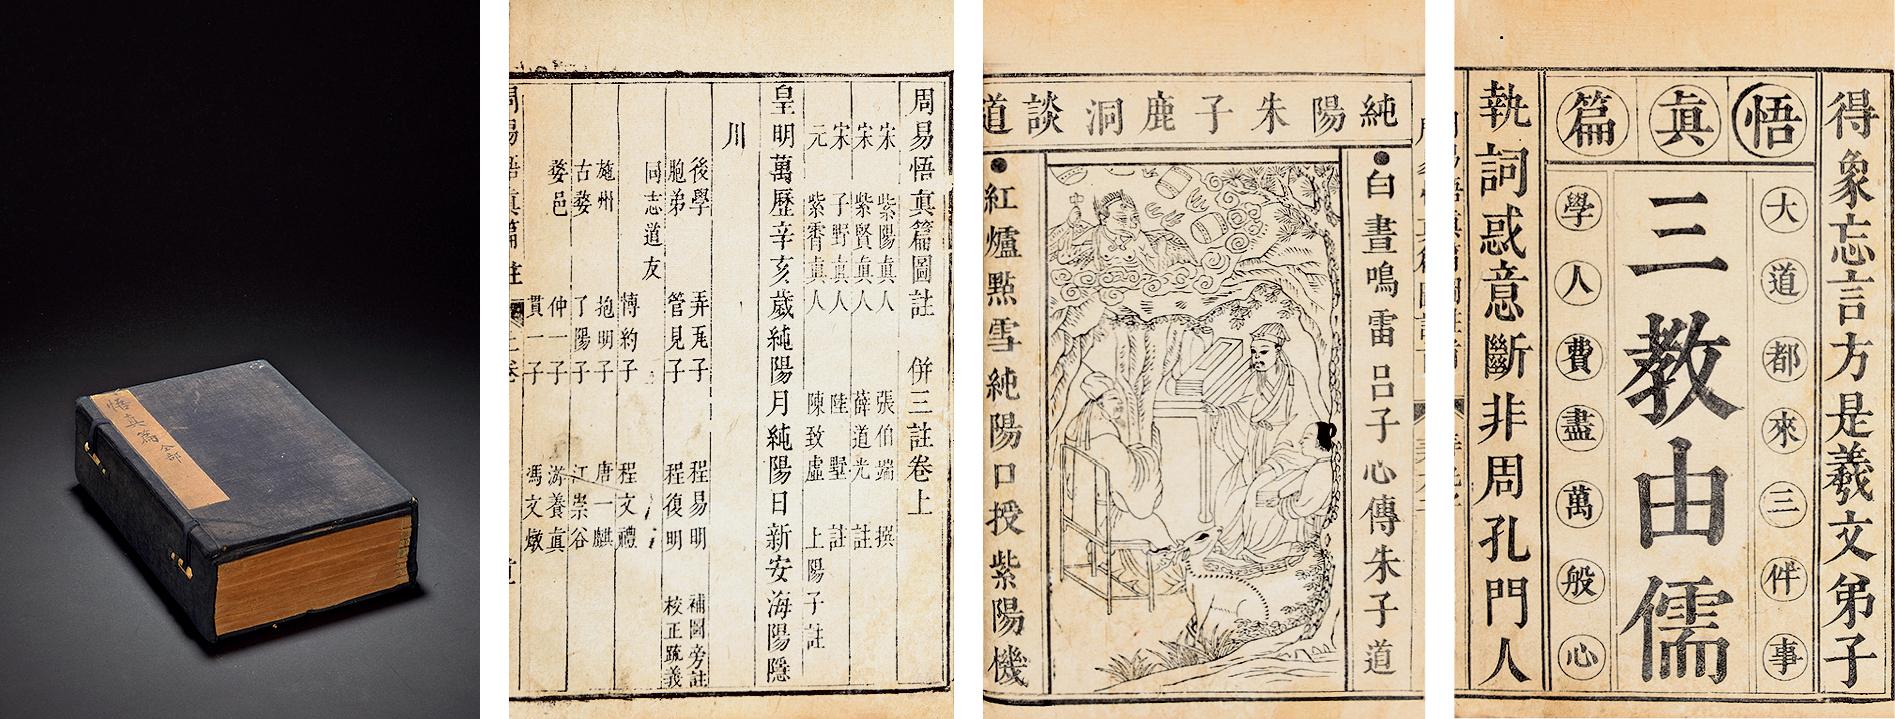 悟真篇 全部
周易悟眞篇圖註 併三註卷上
宋 紫陽眞人 張伯端 撰
宋 紫賢眞人 薛道光 註
宋 子野眞人 陸墅 註
元 紫霄眞人 陳致虛 上陽子註
皇明萬歷辛亥歲純陽月純陽日新安海陽隱
川
後學 弄丸子 程易明 補圖旁註
胞弟 管見子 程復明 校正䟽義
同志道友
博約子 程文禮
㢝州 抱明子 唐一麒
古婺 了陽子 江崇谷
婺邑 仲一子 游養眞
貫一子 馮文燉
周易悟眞篇 註 上卷
純陽朱子鹿洞談道
白晝鳴雷呂子心傳朱子道
紅爐點雪純陽口授紫陽機
得象忘言方是羲文弟子
悟眞篇
大道都來三件事
三教由儒
學人費盡萬般心
執詞惑意斷非周孔門人